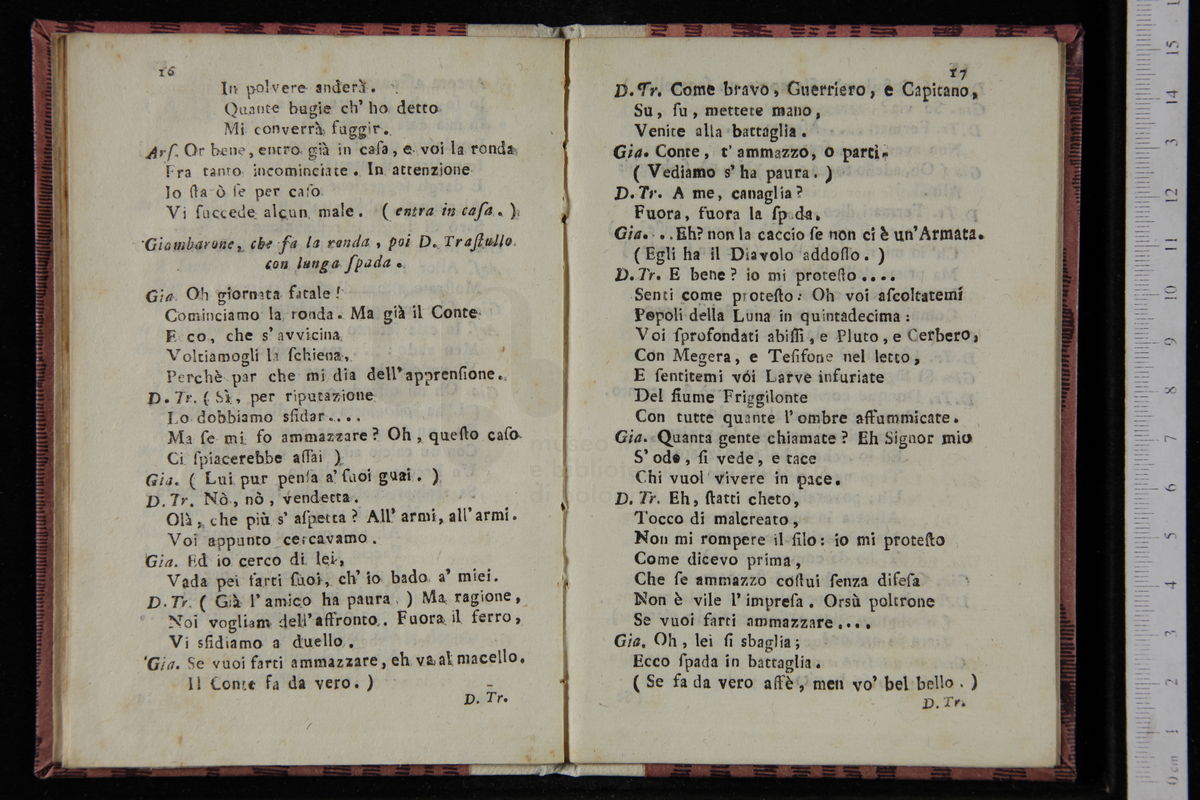 16
In polvere anderà.
Quante bugie ch' ho detto
Mi converrà fuggir.
Arſ. Or bene, entro già in caſa, e voi la ronda
Fra tanto incominciate. In attenzione
Io ſta ò ſe per caſo
Vi ſuccede alcun male. (entra in caſa.)
Giambarone, che fa la ronda, poi D. Traſtullo
con lunga ſpada.
Gia. Oh giornata fatale!
Cominciamo la ronda. Ma già il Conte
E co, che s' avvicina
Voltiamogli la ſchiena,
Perchè par che mi dia dell' apprenſione.
D. Tr. (Sì, per riputazione
Lo dobbiamo sfidar....
Ma ſe mi fo ammazzare? Oh, queſto caſo
Ci ſpiacerebbe aſſai)
Gia. (Lui pur penſa a' ſuoi guai.)
D. Tr. Nò, nò, vendetta.
Olà, che più s' aſpetta? All' armi, all' armi.
Voi appunto cercavamo.
Gia. Ed io cerco di lei,
Vada pei fatti ſuoi, ch' io bado a' miei.
D. Tr. (Già l' amico ha paura.) Ma ragione,
Noi vogliam dell' affronto. Fuora il ferro,
Vi sfidiamo a duello.
Gia. Se vuoi farti ammazzare, eh va al macello.
Il Conte fa da vero.)
D. Tr.
17
D. Tr. Come bravo, Guerriero, e Capitano,
Su, ſu, mettete mano,
Venite alla battaglia.
Gia. Conte, t' ammazzo, o parti.
(Vediamo s' ha paura.)
D. Tr. A me, canaglia?
Fuora, fuora la ſpada.
Gia. ..Eh? non la caccio ſe non ci è un' Armata.
(Egli ha il Diavolo addoſſo.)
D. Tr. E bene? io mi proteſto....
Senti come proteſto: Oh voi aſcoltatemi
Popoli della Luna in quintadecima:
Voi ſprofondati abiſſi, e Pluto, e Cerbero,
Con Megera, e Teſifone nel letto,
E ſentitemi vói Larve infuriate
Del fiume Friggilonte
Con tutte quante l' ombre affummicate.
Gia. Quanta gente chiamate? Eh Signor mio
S' ode, ſi vede, e tace
Chi vuol vivere in pace.
D. Tr. Eh, ſtatti cheto,
Tocco di malcreato,
Non mi rompere il filo: io mi proteſto
Come dicevo prima,
Che ſe ammazzo coſtui ſenza difeſa
Non è vile l' impreſa. Orsù poltrone
Se vuoi farti ammazzare....
Gia. Oh, lei ſi sbaglia;
Ecco ſpada in battaglia.
(Se fa da vero affè, men vo' bel bello.)
D. Tr.